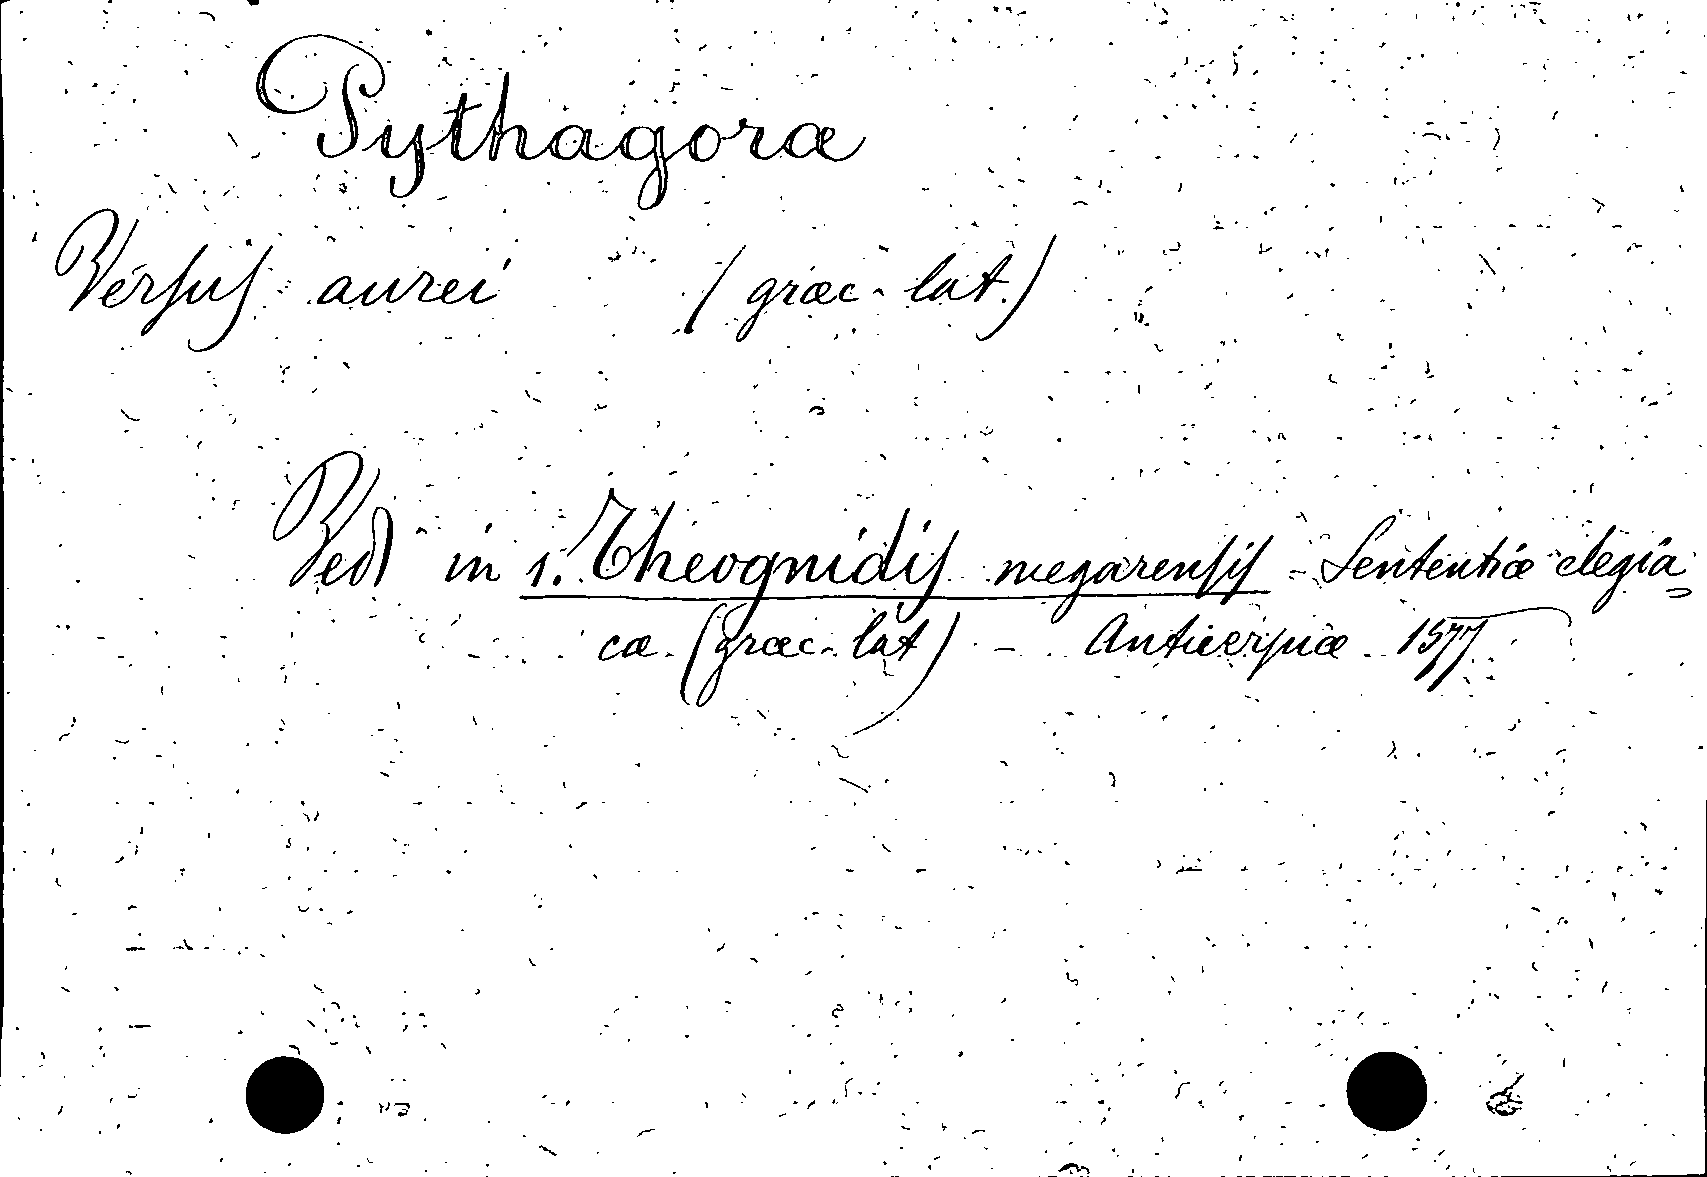 Pythagoræ
Versus aurei (græc-lat.)
Vedi in 1. Theognidis megarensis - Sententiæ elegia=
cæ. (græc-lat) - Antuerpiæ 1577